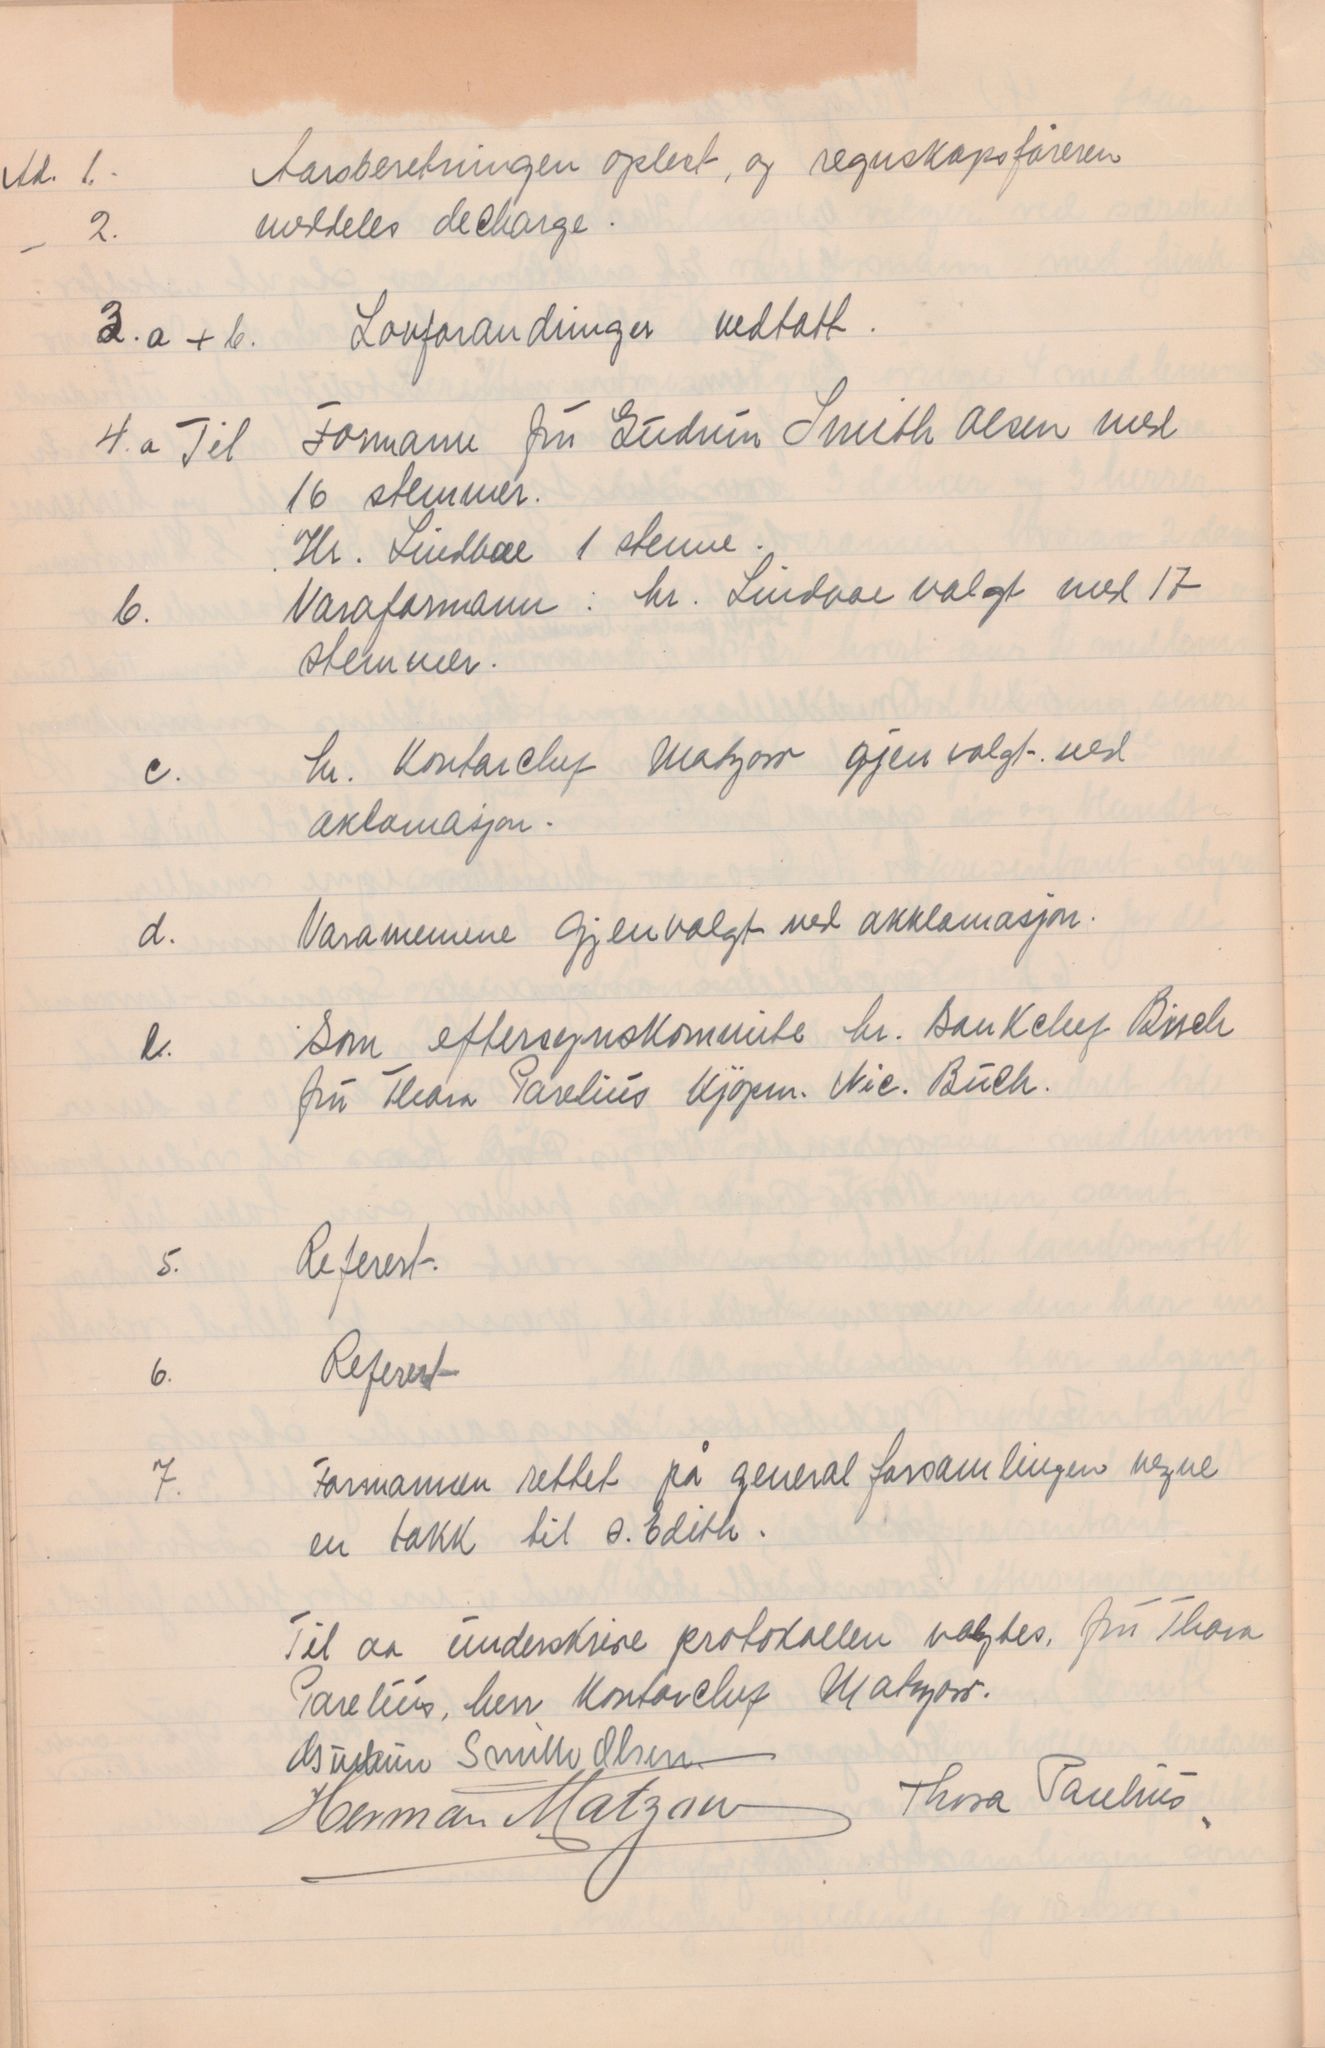 Ad. 1.- Aarsberetningen oplest, og regnskapsføreren
– 2. meddeles decharge.
3. a + b. Lovforandringer vedtatt.
4. a Til Formann frü Güdrün Smith Olsen med
16 stemmer.
Hr. Lindboe 1 stemme.
b. Varaformann: hr. Lindboe valgt med 17
stemmer.
c. hr. Kontorchef Matzow gjenvalgt ved
aklamasjon.
d. Varamennene gjenvalgt ved akklamasjon.
e. Som eftersynskommite hr. Bankchef Büch
frü Thora Parelius Kjöpm. Nic. Büch.
5. Referert.
6. Referert
7. Formannen rettet på generalforsamlingens vegne
en takk til s. Edith.
Til aa ünderskrive protokollen valgtes, frü Thora
Parelius, herr Kontorchef Matzow.
Güdrün Smith Olsen
Herman Matzow Thora Parelius.